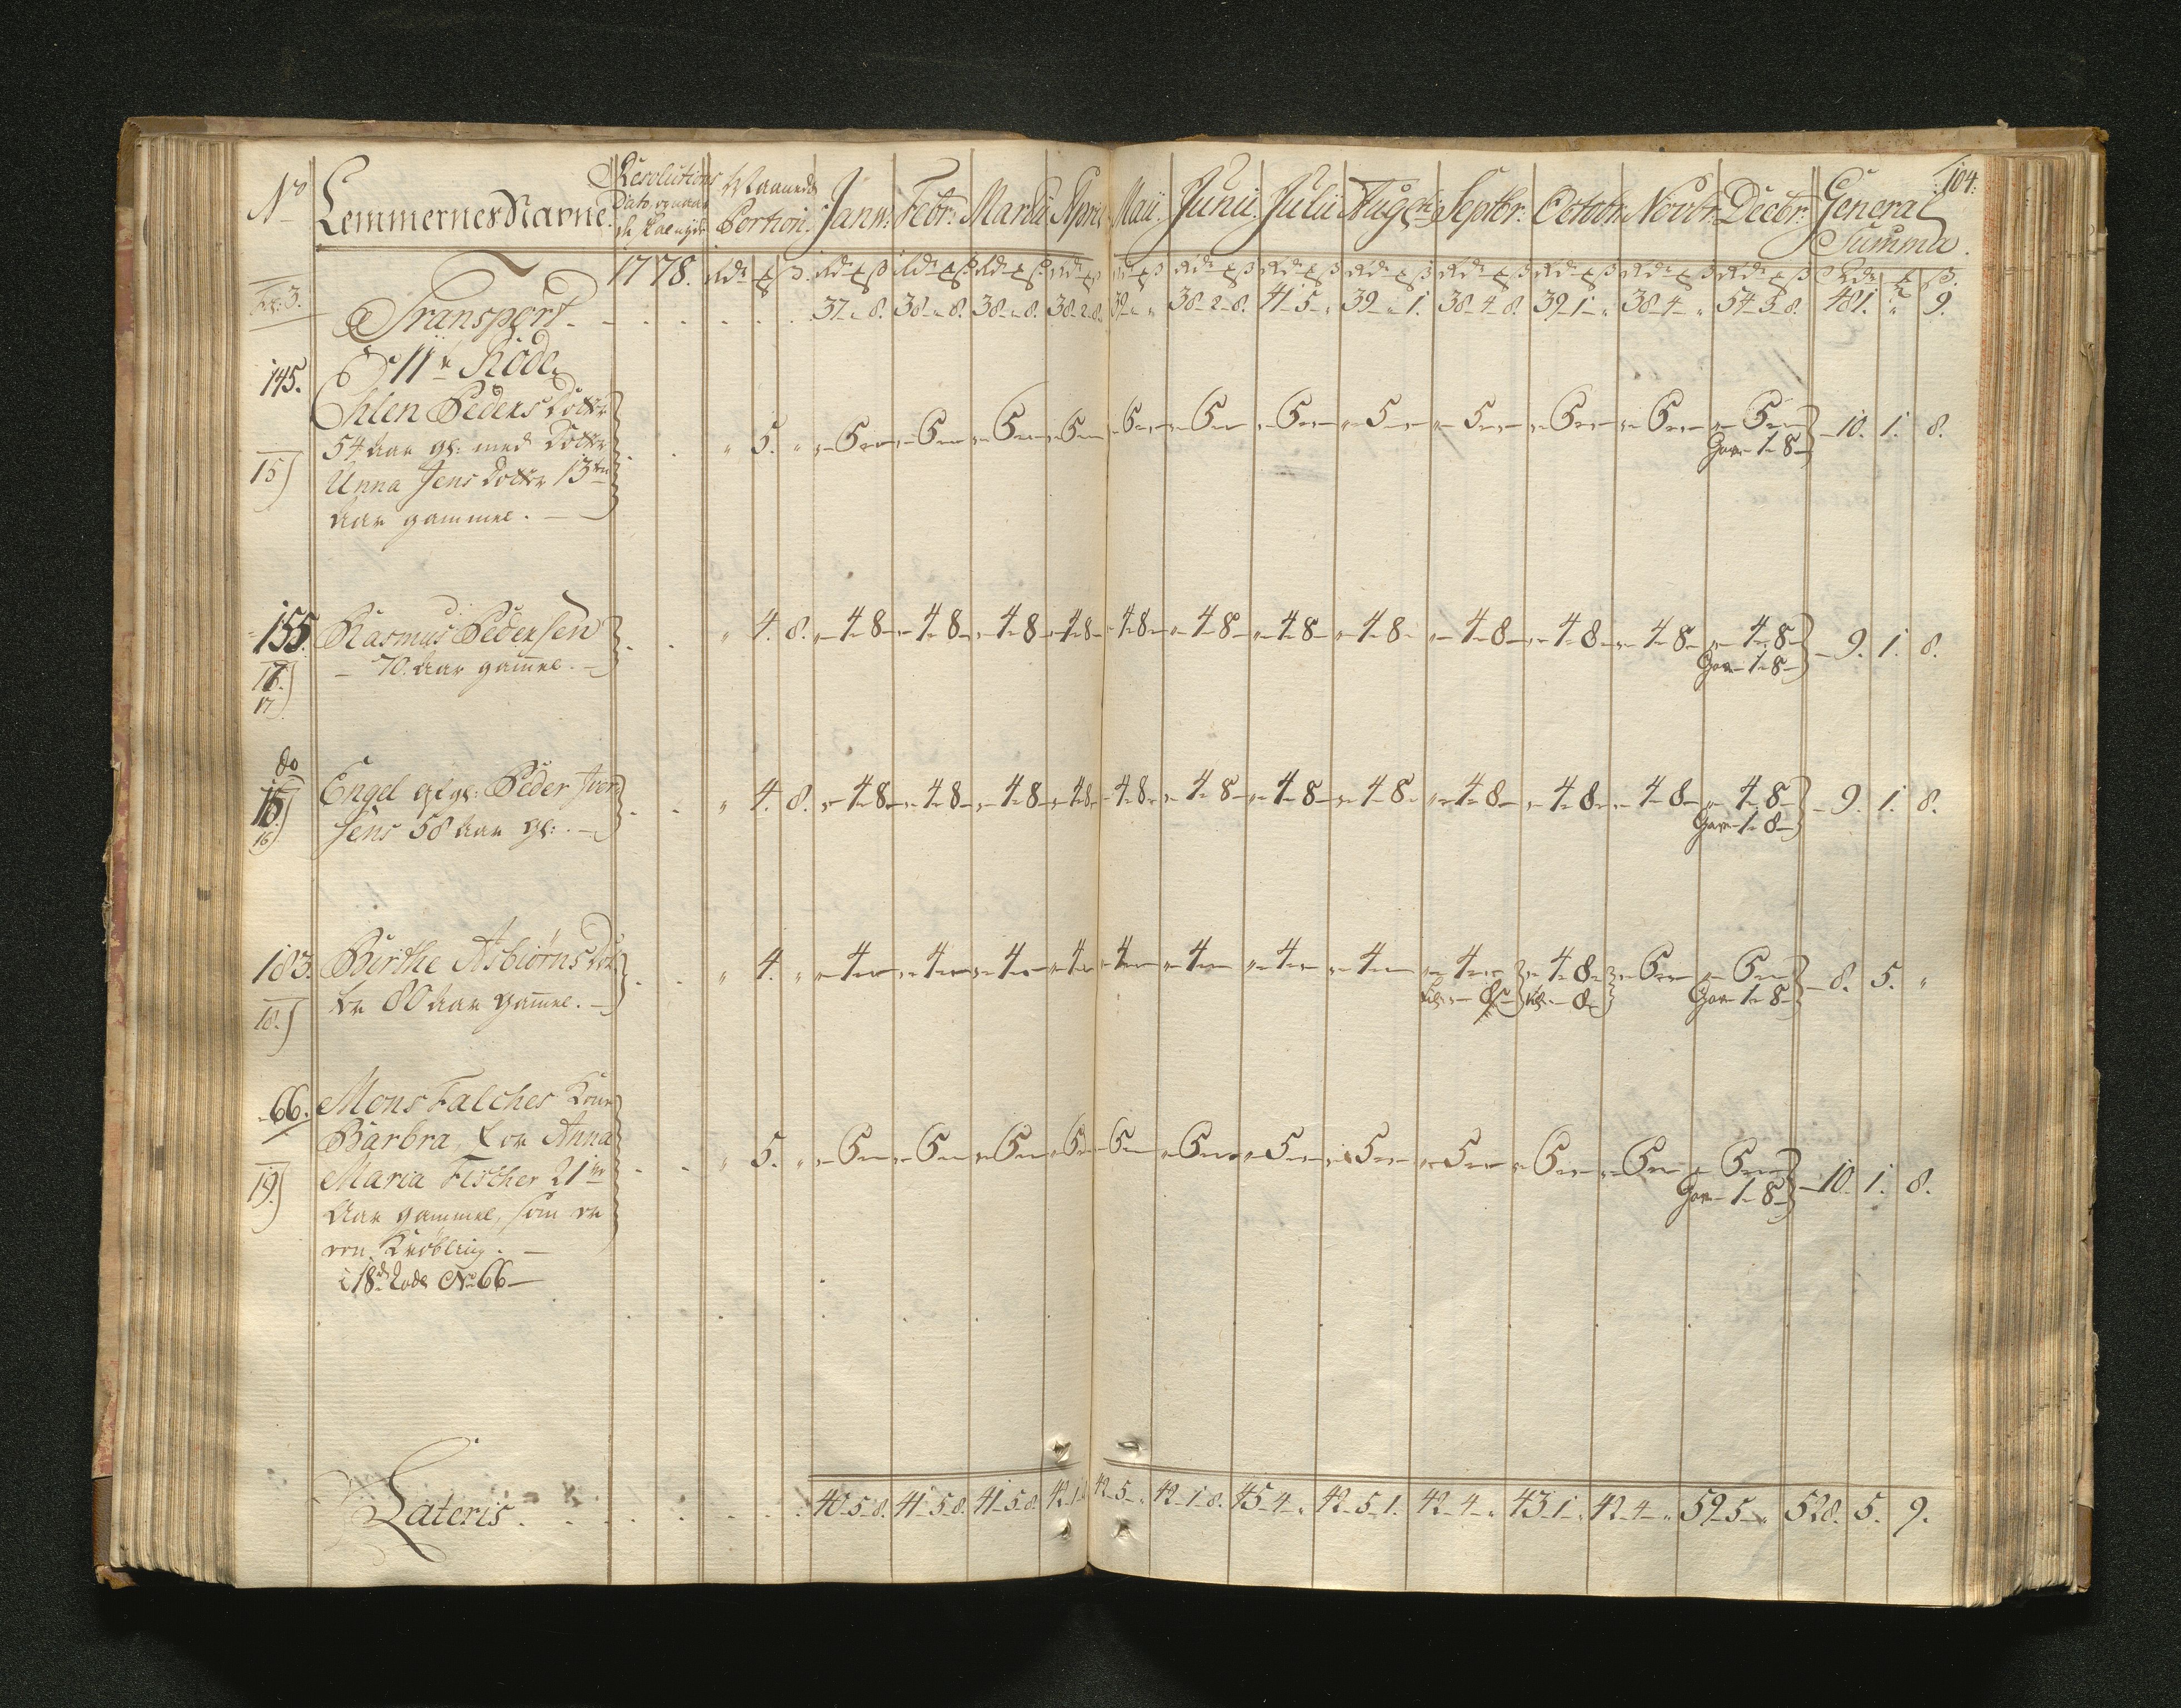 104.
No Lemmernes Navne. Resolutions Dato Maaneds Portion. Janu: Febr: Martii April Maii. Junii. Julii Aug: Septbr: Octobr: Novbr: Decbr: General Summa.
1778. Rdr ß.
Transport. 37 " 8. 38 " 8. 38 " 8. 38 2 8. 39 " " 38 2 8. 41 5 " 39 " 1. 38 4 8. 39 1 " 38 4 " 54 3 8. 481. " 9.
11te Rode
145. Ehlen Peders Dotter " 5. " 5 5 5 5 5 5 5 5 5 5 5 5 10. 1. 8.
54 Aar gl: med Dotter Gave 1 8
15) Anna Jens Dotter 13ten
Aar gammel.
155. Rasmus Pedersen " 4. 8. 4 8 4 8 4 8 4 8 4 8 4 8 4 8 4 8 4 8 4 8 4 8 4 8 9. 1. 8.
70. Aar gammel. Gave 1 8
17)
do
Engel Peder Iver " 4. 8. 4 8 4 8 4 8 4 8 4 8 4 8 4 8 4 8 4 8 4 8 4 8 4 8 9. 1. 8.
sens 58 Aar gl: Gave 1 8
16)
183. Birthe Asbiørns Dot " 4. " 4 4 4 4 4 4 4 4 4 4 8 5 5 8. 5. "
ter 80 Aar gammel. 8 8 Gave 1 8
18)
66. Mons Falches Kone
Barbra, for Anna " 5. " 5 5 5 5 5 5 5 5 5 5 5 5 10. 1. 8.
19) Maria Fischer 21 Gave 1 8
Aar gammel, som er
en Krøbling.
i 18de Rode No 66
Lateris. 40 5 8. 41 5 8. 41 5 8. 42 1 8 42 5 " 42 1 8. 45 4 " 42 5 1. 42 4 " 43 1 " 42 4 " 59 5 " 528. 5. 9.